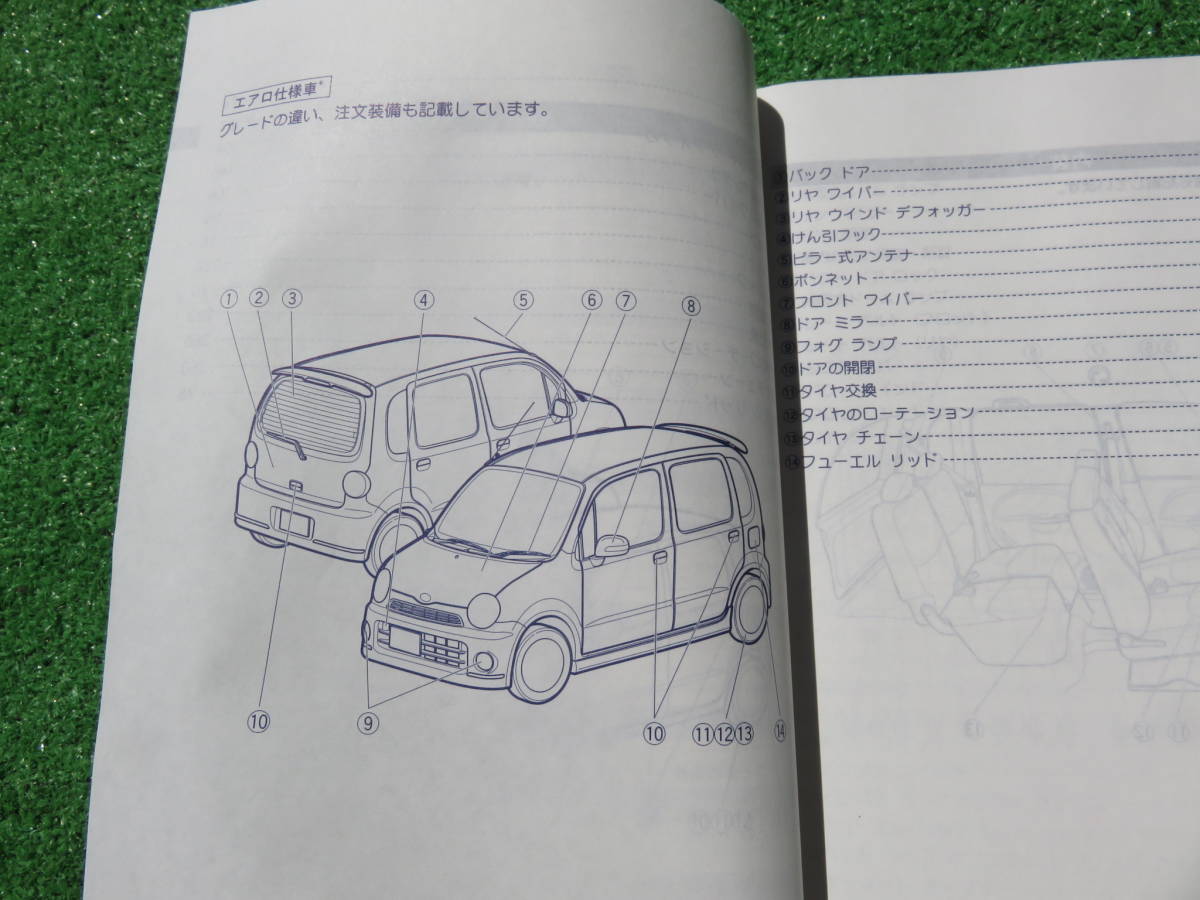 エアロ仕様車*
グレードの違い、注文装備も記載しています。
① ② ③ ④ ⑤ ⑥ ⑦ ⑧
⑩ ⑨ ⑩ ⑪⑫⑬ ⑭
①バック ドア
②リヤ ワイパー
③リヤ ウインド デフォッガー
④けん引フック
⑤ピラー式アンテナ
⑥ボンネット
⑦フロント ワイパー
⑧ドア ミラー
⑨フォグ ランプ
⑩ドアの開閉
⑪タイヤ交換
⑫タイヤのローテーション
⑬タイヤ チェーン
⑭フューエル リッド